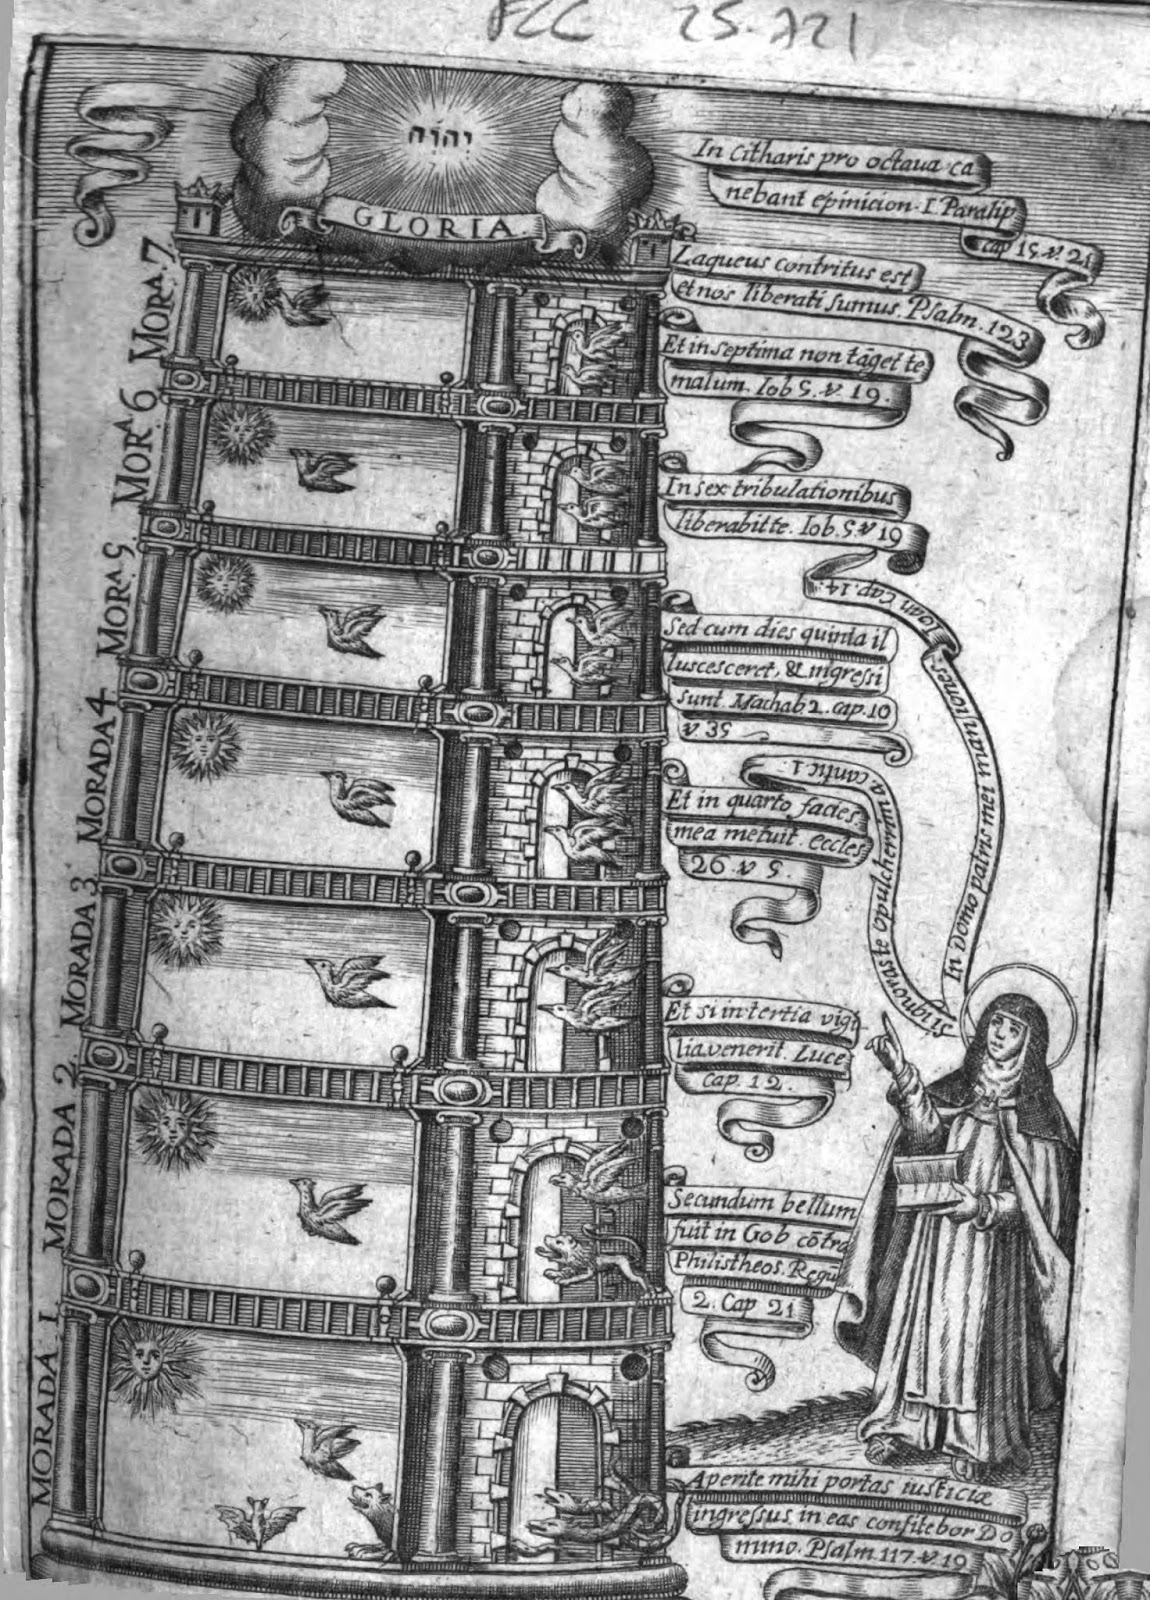 FCC 25.721
יהוה
GLORIA
In citharis pro octaua ca
nebant epinicion. I. Paralip
cap 15. v. 21
Laqueus contritus est
et nos liberati sumus. Psalm. 123
MORA. 7
Et in septima non tāget te
malum. Iob 5. v. 19.
MORA 6
In sex tribulationibus
liberabit te. Iob. 5. v 19
MORA 5
Sed cum dies quinta il
luscesceret, & ingressi
sunt. Machab 2. cap. 10
v. 35
MORADA 4
Et in quarto facies
mea metuit. eccles
26. v 5.
MORADA 3
Et si in tertia vigi
lia venerit. Luce
Cap. 12.
MORADA 2
Secundum bellum
fuit in Gob cōtra
Philistheos. Regū
2. Cap 21
MORADA 1
Aperite mihi portas iusticiæ
ingressus in eas confitebor Do
mino. Psalm 117. v 19
In Domo patris mei mansiones. Ioan Cap. 14
Si ignoras te o pulcherrima. cantic 1.